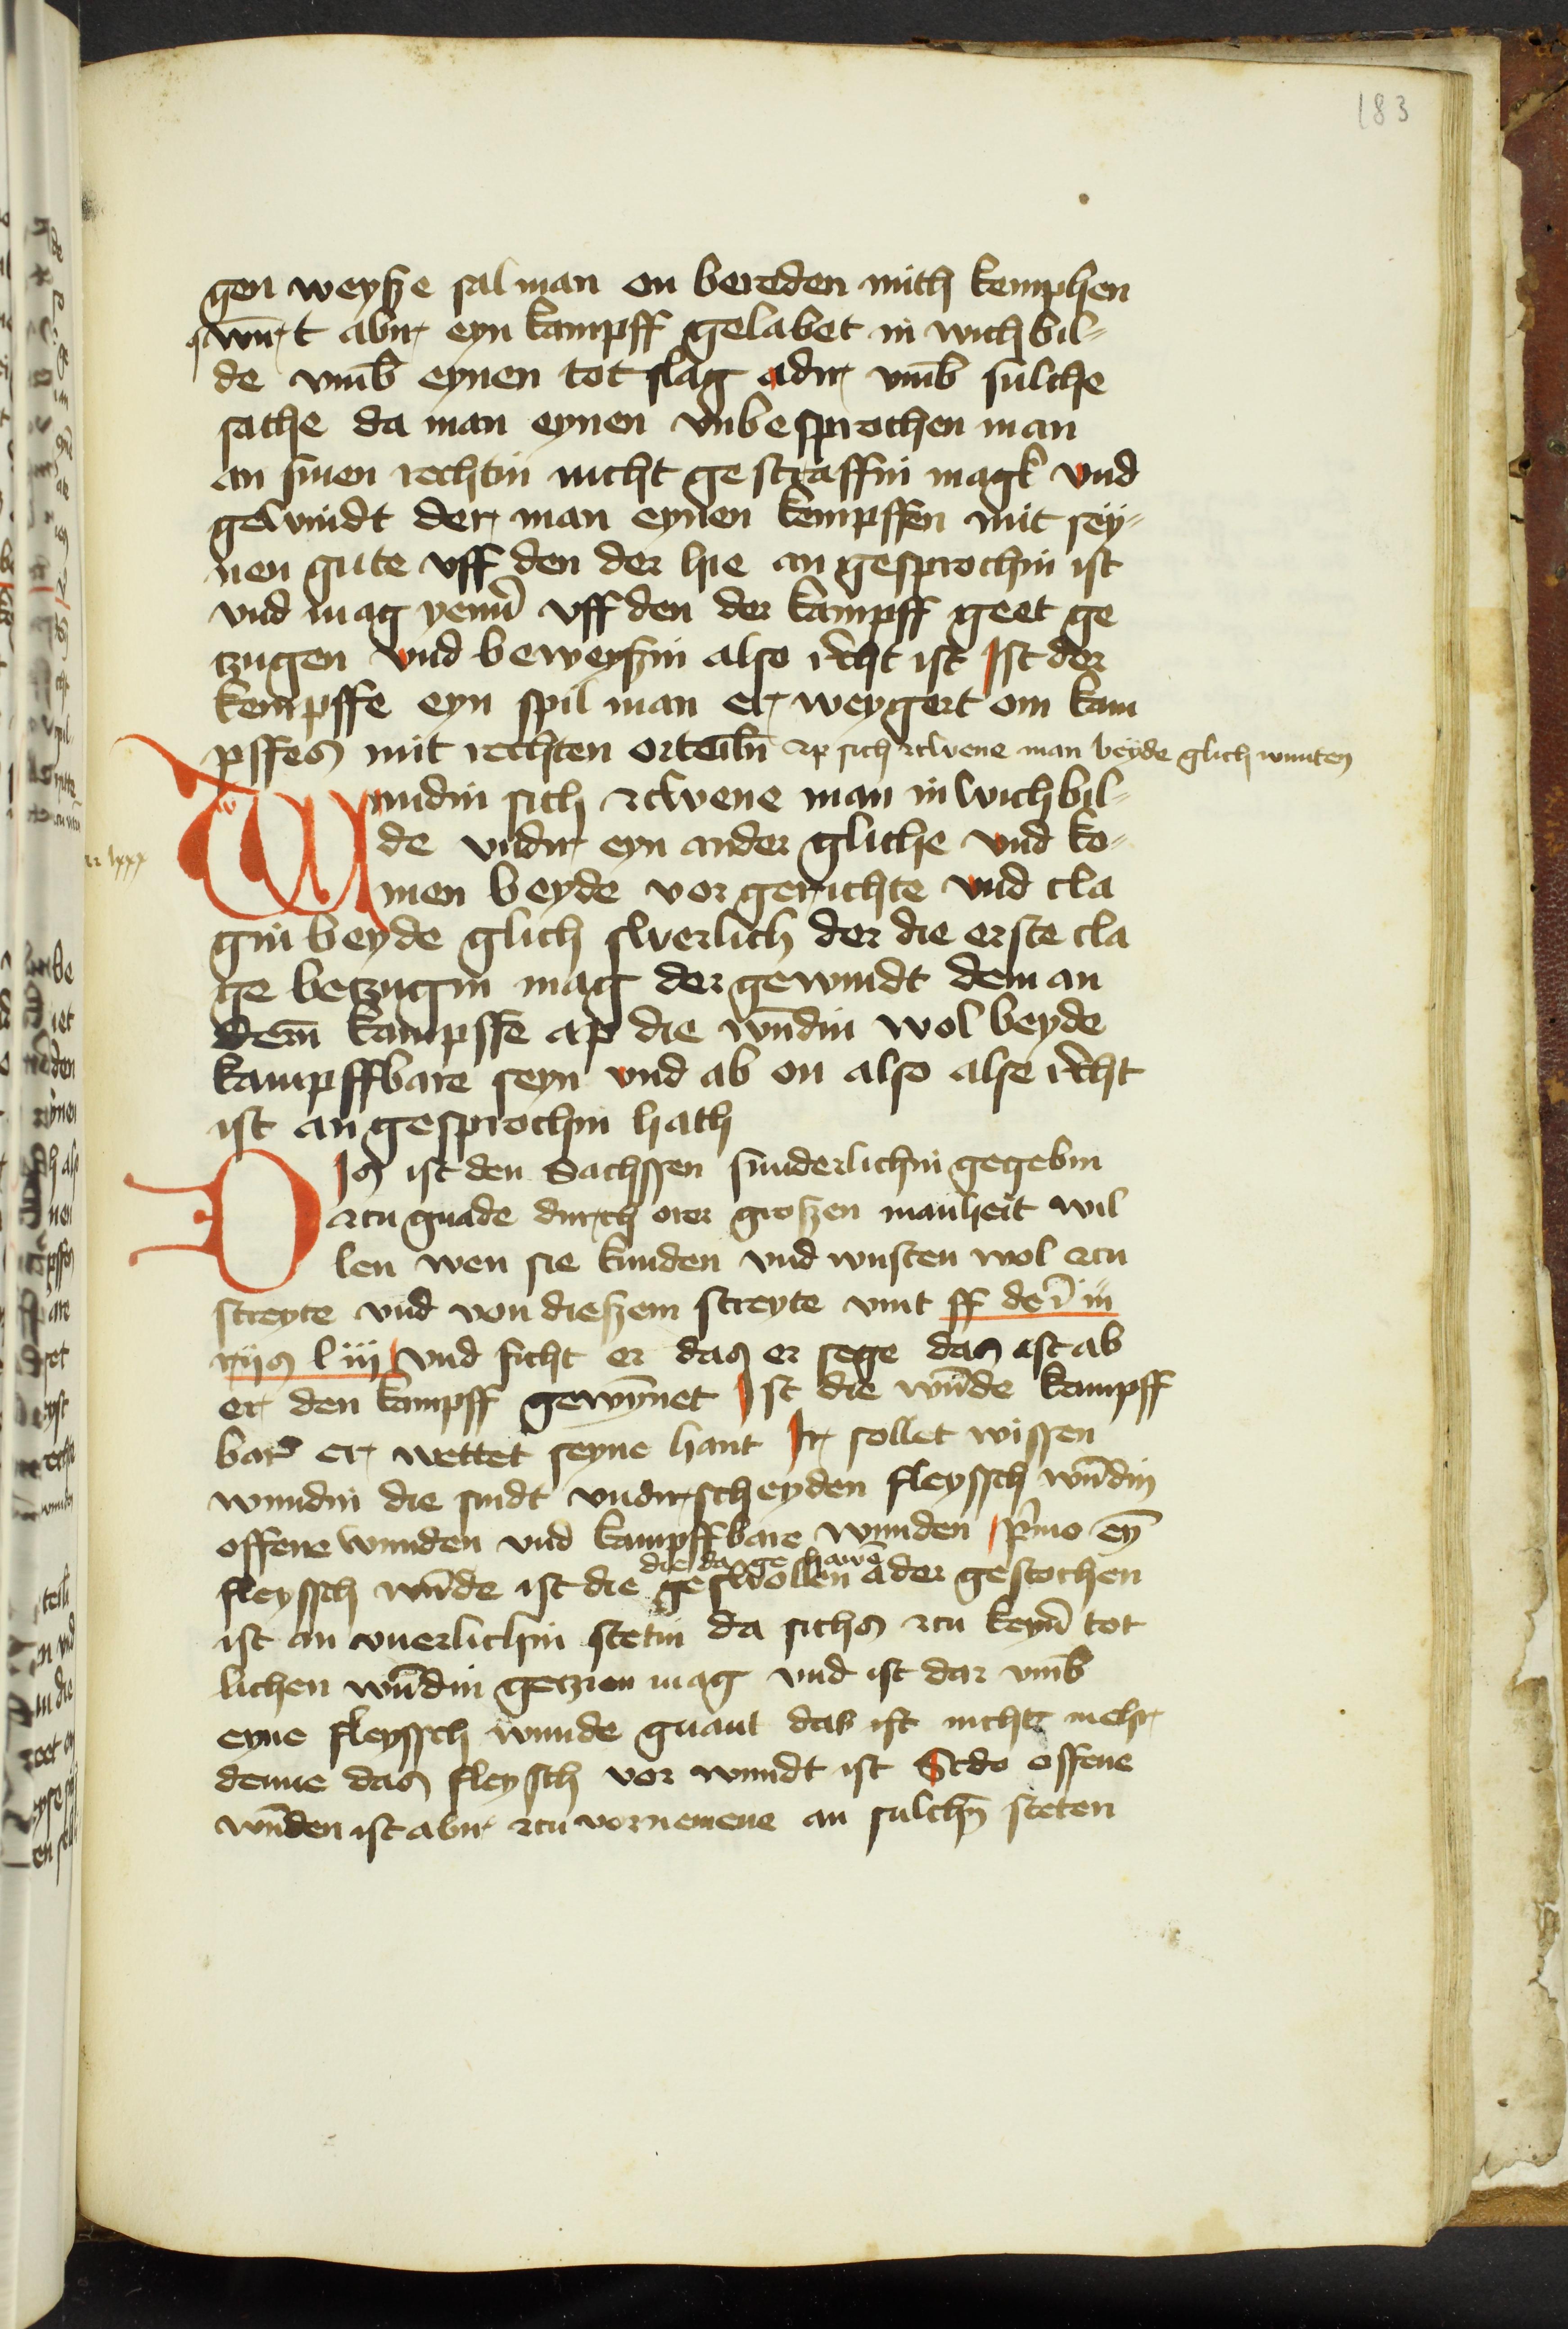 183
gen weysze sal man en bereden mith kemphen
wūrt abir eyn kampff gelabet in wichbil-
de vmb eynen tot slag adir vmb sulche
sache da man eynen vnbesprochen man
an sinen rechtin nicht gestraffin magk vnd
gewindt der man eynen kempffen mit sey-
nen gute vff den der hie an gesprochin ist
vnd mag yenn̄ vff den der kampff geet ge
tzugen vnd beweyszin also recht ist Ist der
kempffe eyn spil man er weygert om kam
pffes mit rechten orteiln̄ Ap sich tzwene man beyde glich wunten
Wundin sich tzwene man in wichbil-
de vndir eyn ander gliche vnd ko-
men beyde vor gerichte vnd cla
gin beyde glich swerlich der die erste cla
ge betzugin mag der gewindt dem an
dem̄ kampffe ap die wūdin wol beyde
kampffbare seyn vnd ab on also also recht
ist an gesprochin hath
Dis ist den Sachssen sunderlichin gegebin
tzu gnade durch orer groszen manheit wil
len wen sie kunden vnd wusten wol tzu
streyte vnd von dieszem streyte vint ff de i in
rijs l iij vnd ficht er das er sege das ist ab
er den kampff gewynnet Ist die wūde kampff
bar er wettet seyne hant Ir sollet wissen
wundin die sindt vndirscheyden fleyssch wūdin
offene wunden vnd kampffbare wunden primo eyn̄
die da ge hawē
fleyssch wūde ist die geswollen ader gestochen
ist an vnerlichin stetin da sichs tzu keyn̄ tot
lichen wūdin getzien mag vnd ist dar vmb
eyne fleyssch wunde gnant das ist nicht mehr
denne das fleysch vor wundt ist Scdo offene
wūden ist abir tzu vornemene an sulchn̄ steten